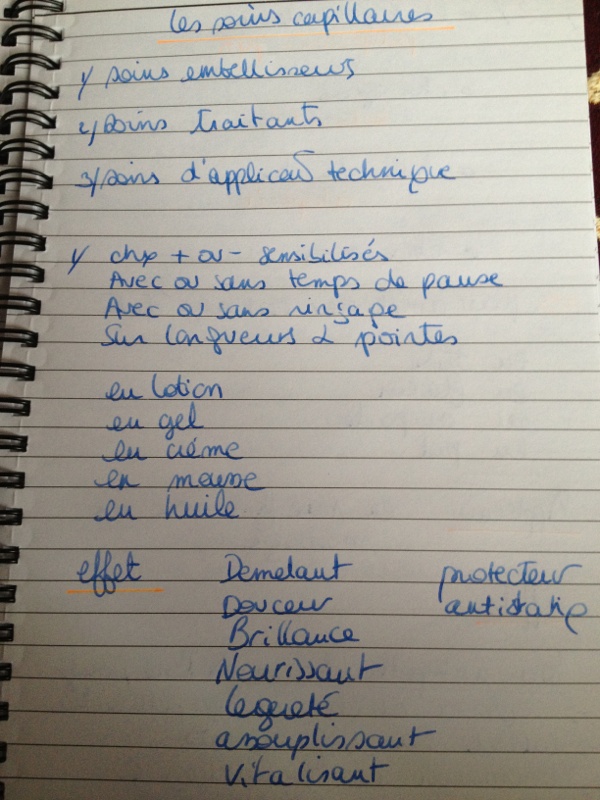 les soins capillaires
1/ soins embellisseurs
2/ soins traitants
3/ soins d'applicat° technique
1/ chvx + ou - sensibilisés
Avec ou sans temps de pause
Avec ou sans rinçage
Sur longueurs & pointes
en lotion
en gel
en crème
en mousse
en huile
effet Demelant protecteur
Douceur antistatiq
Brillance
Nourissant
legereté
assouplissant
vitalisant